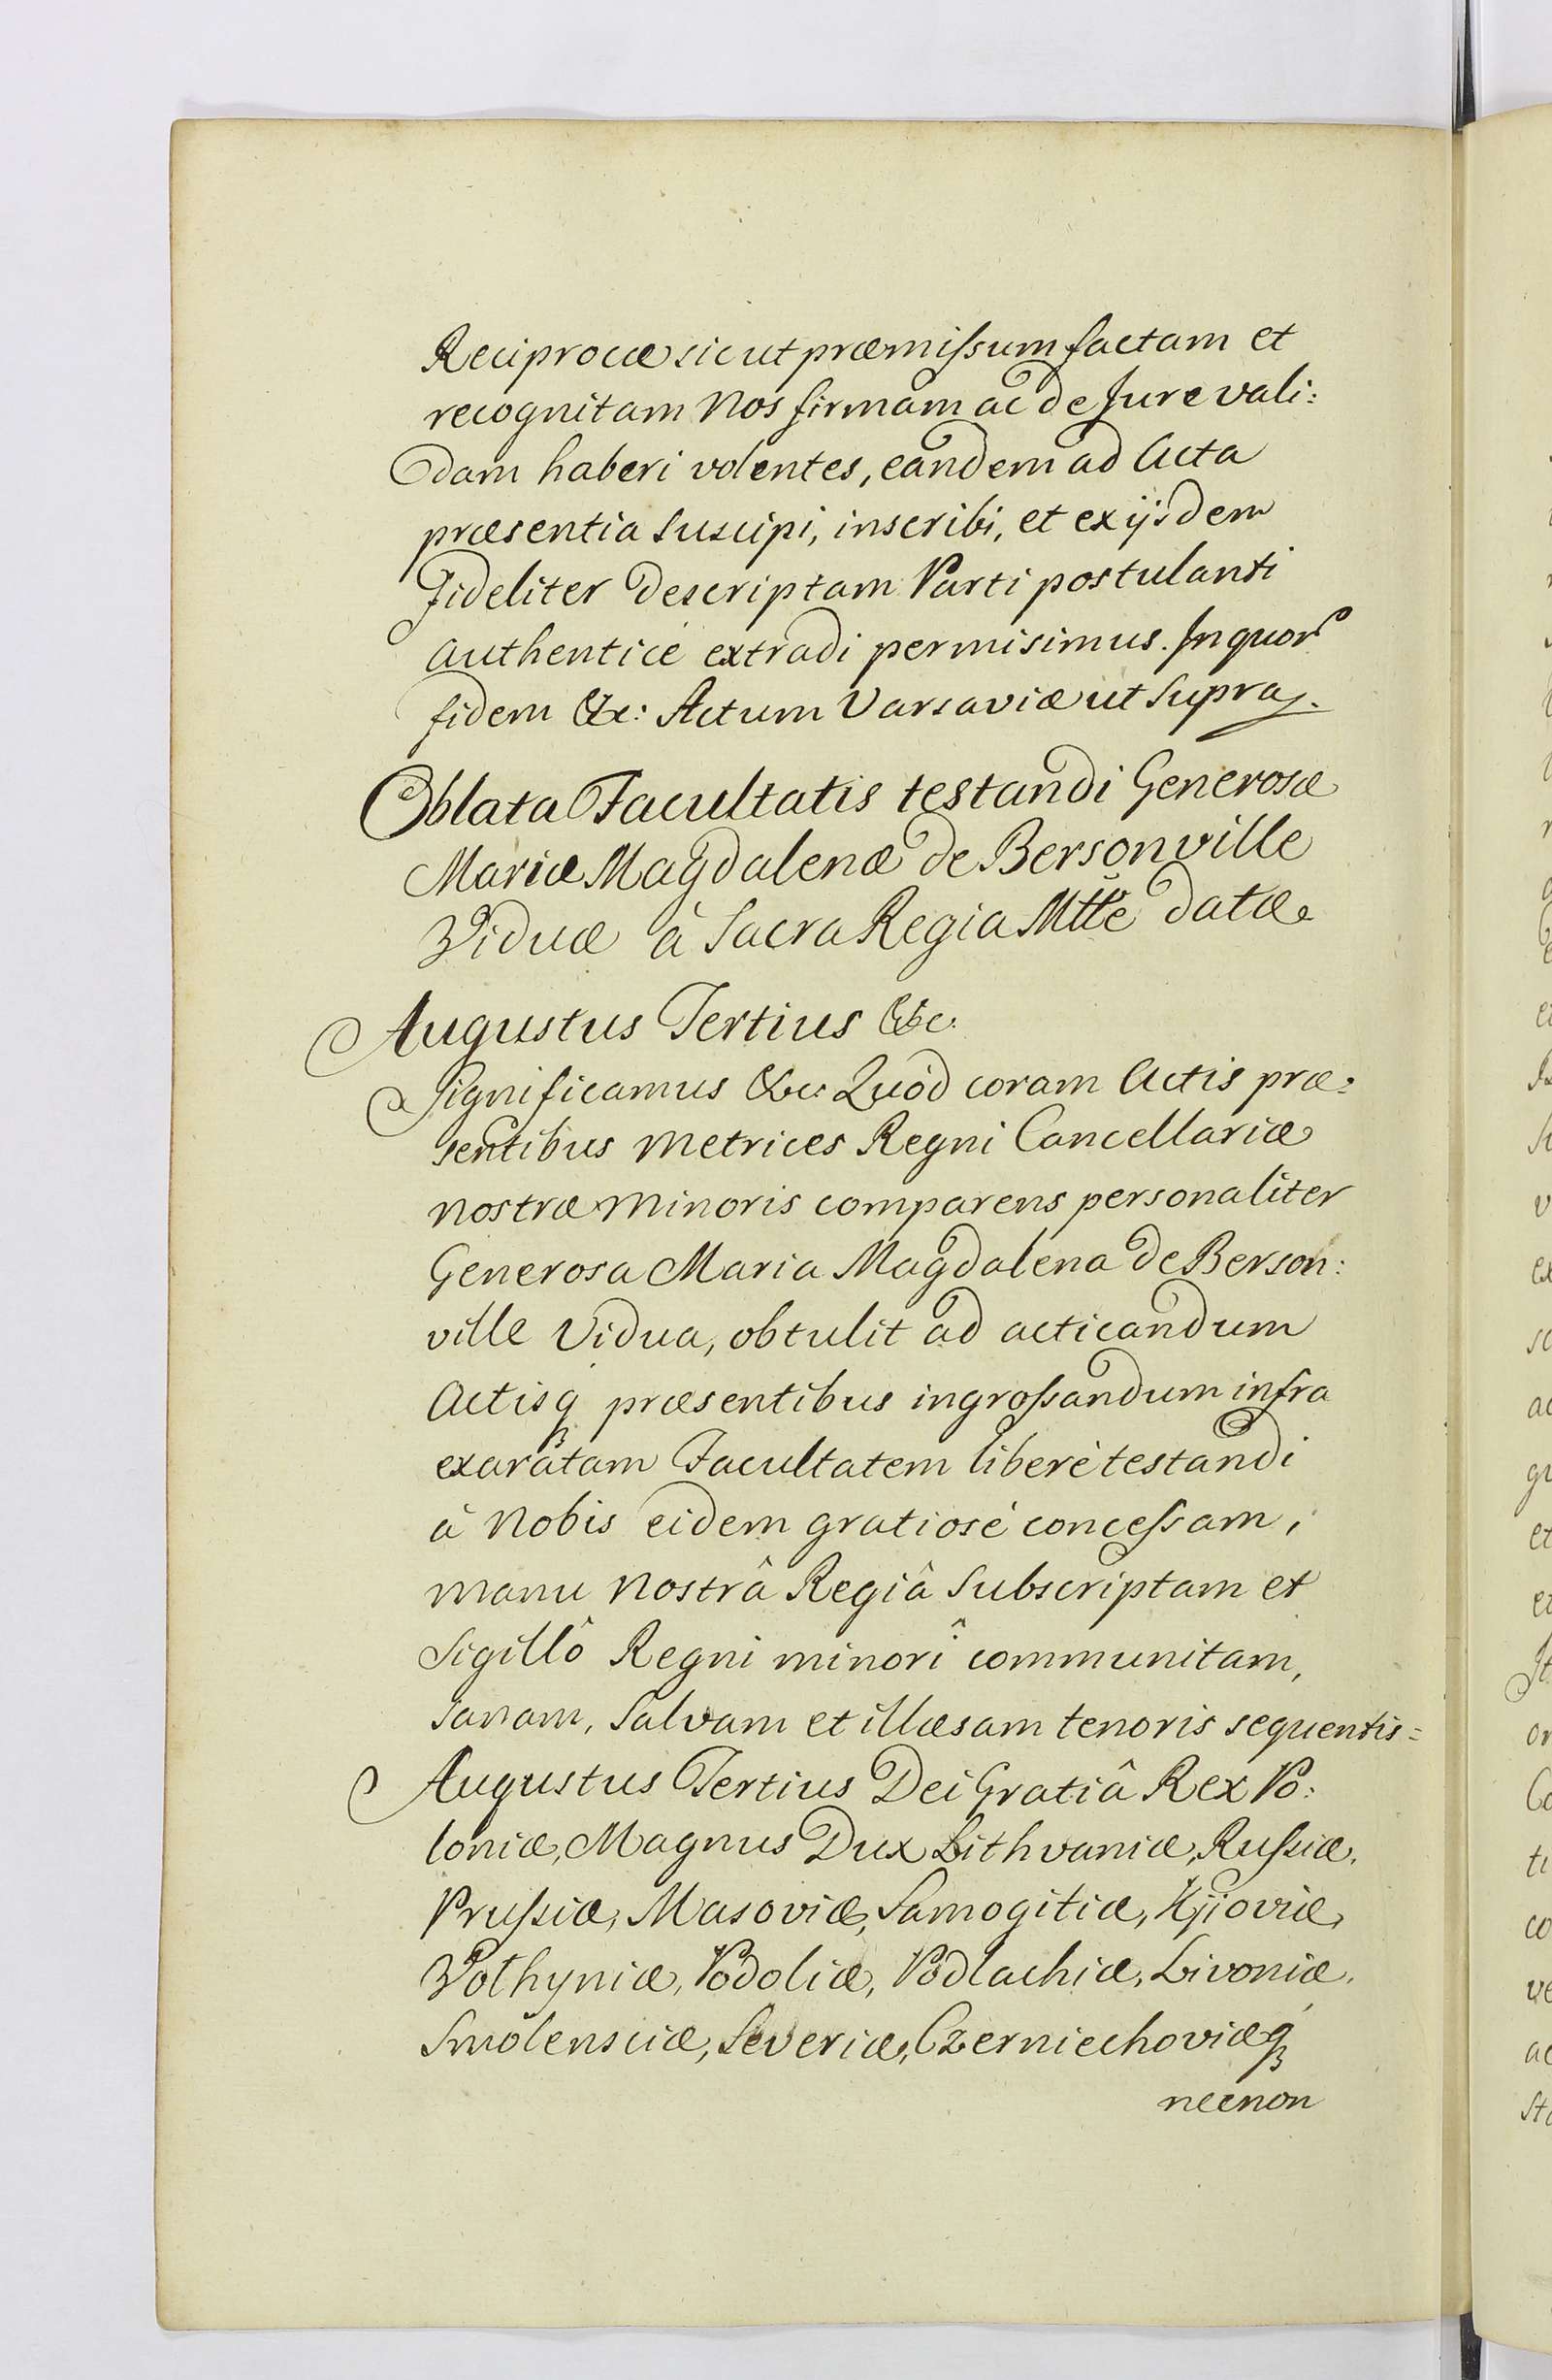 Reciprocæ sicut præmissum factam et
recognitam Nos firmam ac de Jure vali:
dam haberi volentes, eandem ad Acta
præsentia suscipi, inscribi, et ex ijsdem
Fideliter descriptam Parti postulanti
authenticè extradi permisimus. In quorũ
fidem &c: Actum Varsaviæ ut supra.
Oblata Facultatis testandi Generosæ
Mariæ Magdalenæ de Bersonville
Viduæ à Sacra Regia Mtte datæ.
Augustus Tertius &c.
Significamus &c: Quòd coram Actis præ:
sentibus Metrices Regni Cancellariæ
nostræ Minoris comparens personaliter
Generosa Maria Magdalena de Berson:
ville Vidua, obtulit ad acticandum
Actisq præsentibus ingrossandum infra
exaratam Facultatem liberè testandi
à Nobis eidem gratiosè concessam,
manu Nostrâ Regiâ Subscriptam et
Sigillô Regni minorî communitam,
sanam, Salvam et illæsam tenoris sequentis=
Augustus Tertius Dei Gratiâ Rex Po:
loniæ, Magnus Dux Lithvaniæ, Russiæ,
Prussiæ, Masoviæ, Samogitiæ, Kijoviæ,
Volhyniæ, Podoliæ, Podlachiæ, Livoniæ,
Smolensciæ, Severiæ, Czerniechoviæq
necnon